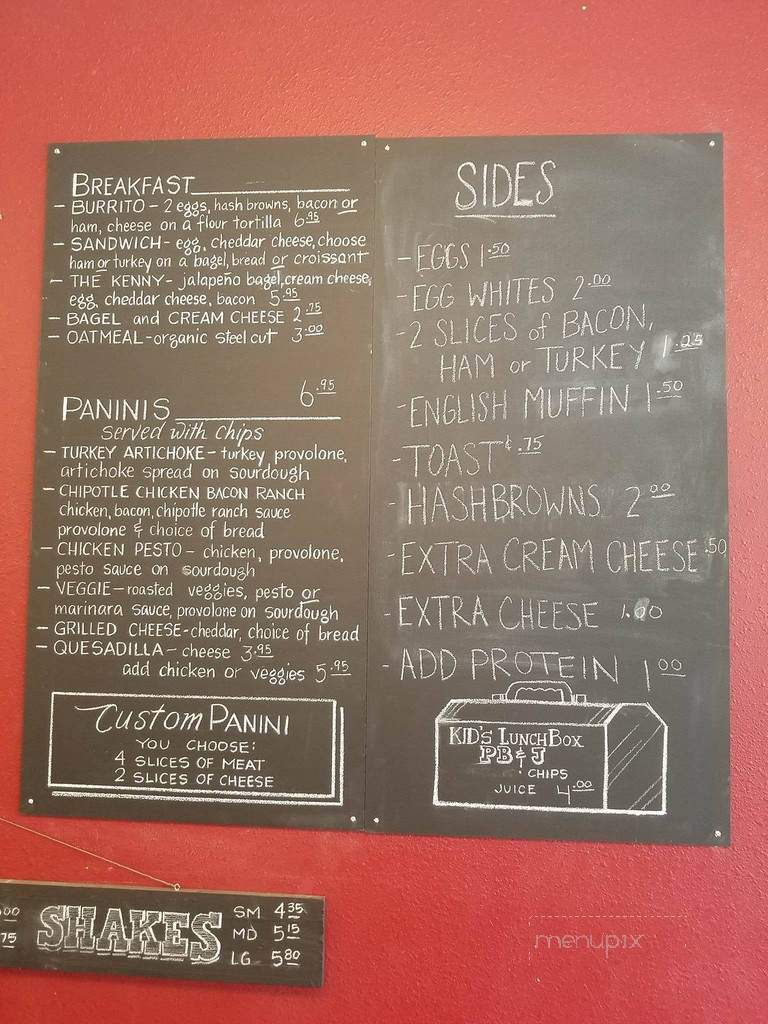 BREAKFAST
- BURRITO - 2 eggs, hash browns, bacon or
ham, cheese on a flour tortilla 6.95
- SANDWICH - egg, cheddar cheese, choose
ham or turkey on a bagel, bread or croissant
- THE KENNY - jalapeño bagel, cream cheese,
egg, cheddar cheese, bacon 5.95
- BAGEL and CREAM CHEESE 2.75
- OATMEAL - organic steel cut 3.00
6.95
PANINIS
served with chips
- TURKEY ARTICHOKE - turkey, provolone,
artichoke spread on sourdough
- CHIPOTLE CHICKEN BACON RANCH
chicken, bacon, chipotle ranch sauce
provolone & choice of bread
- CHICKEN PESTO - chicken, provolone,
pesto sauce on sourdough
- VEGGIE - roasted veggies, pesto or
marinara sauce, provolone on sourdough
- GRILLED CHEESE - cheddar, choice of bread
- QUESADILLA - cheese 3.95
add chicken or veggies 5.95
Custom PANINI
YOU CHOOSE:
4 SLICES OF MEAT
2 SLICES OF CHEESE
SIDES
- EGGS 1.50
- EGG WHITES 2.00
- 2 SLICES of BACON,
HAM or TURKEY 1.25
- ENGLISH MUFFIN 1.50
- TOAST ¢.75
- HASHBROWNS 2.00
- EXTRA CREAM CHEESE .50
- EXTRA CHEESE 1.00
- ADD PROTEIN 1.00
KID'S LUNCHBOX
PB & J
CHIPS
JUICE 4.00
00
75
SHAKES
SM 4.35
MD 5.15
LG 5.80
menupix